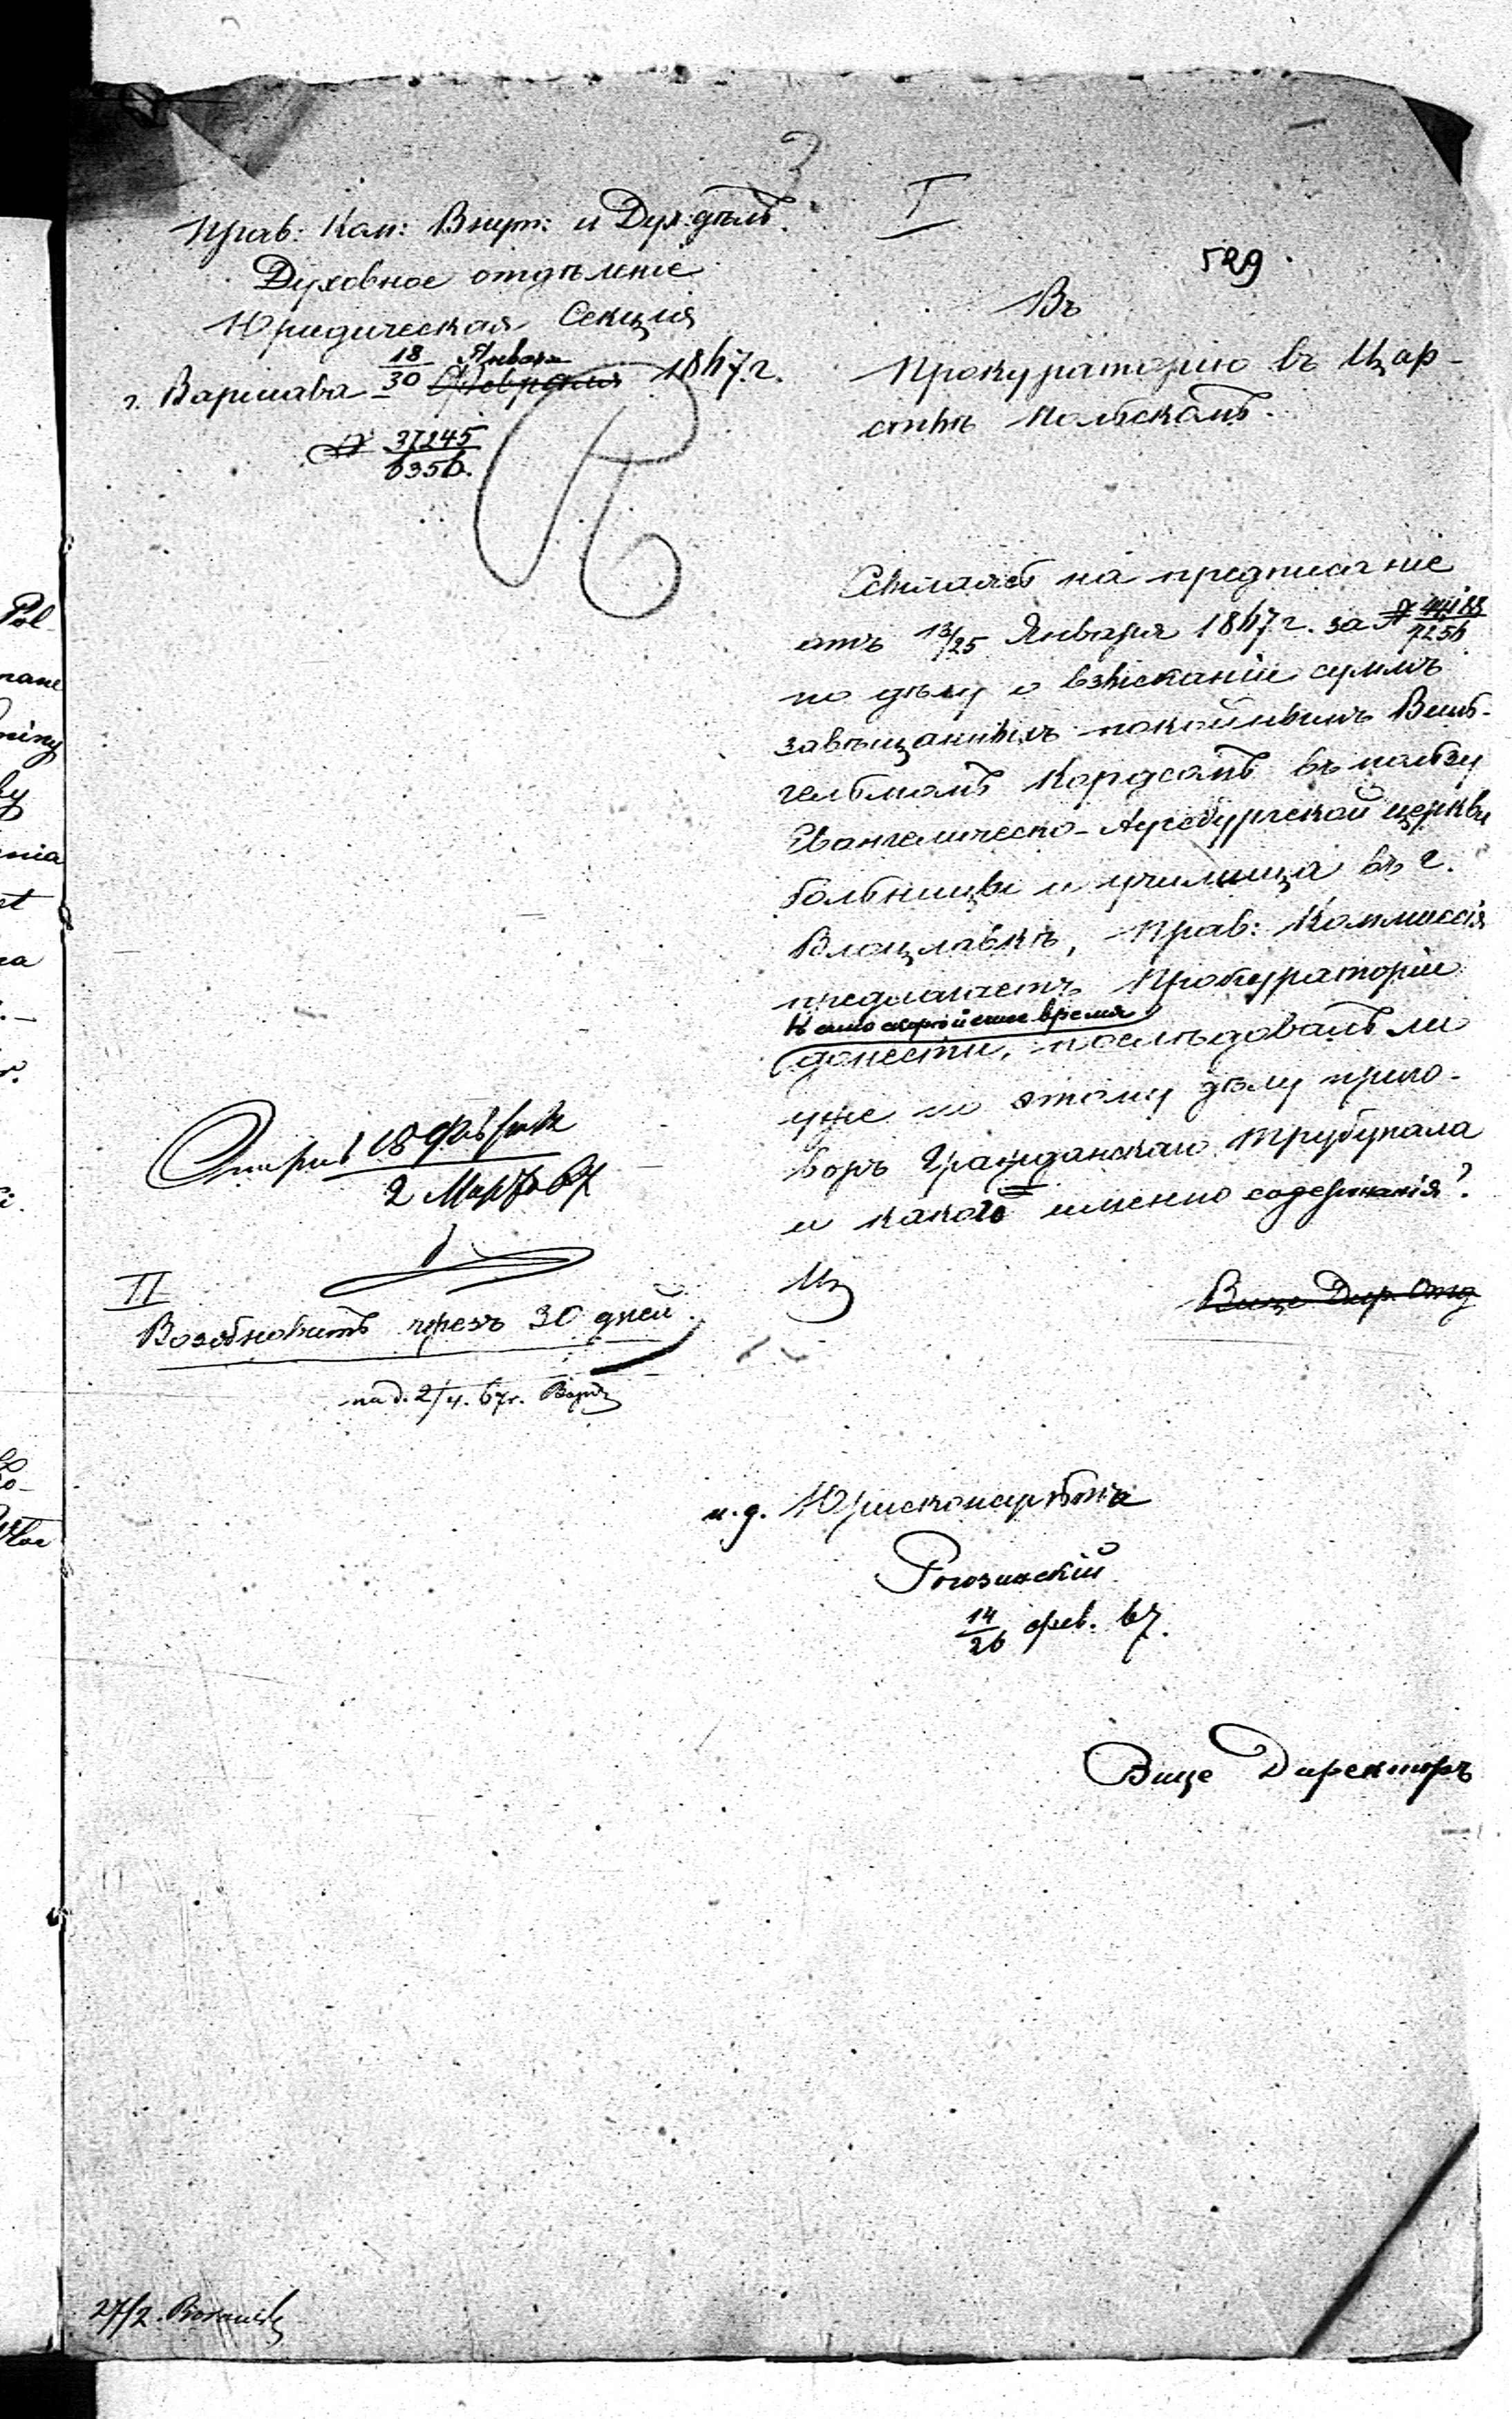 3
I
529
Прав: Ком: Внут: и Дух: дѣлъ.
Духовное отдѣленіе
Юридическая Секція
18 Января
г. Варшава 30 Февраля 1867 г.
№ 37245
6356.
Въ
Прокураторію въ Цар-
ствѣ Польскомъ.
Ссылаясь на предписаніе
отъ 13/25 Января 1867 г. за № 44188
7256
по дѣлу о взысканіи суммъ
завѣщанныхъ покойнымъ Виль-
гельмомъ Кордсомъ въ пользу
Евангелическо-Аугсбургской церкви
больницы и училища въ г.
Влоцлавкѣ, Прав: Коммиссія
предлагаетъ Прокураторіи
въ самоскорѣйшее время
донести, послѣдовалъ ли
уже по этому дѣлу приго-
воръ Гражданскаго Трубунала
и какого именно содержанія?
Вице Дир. Отд
18 Февраля
2 Марта 67
II
Возобновить чрезъ 30 дней.
на д. 2/4. 67 г.
и. д. Юрисконсульта
Рогозинскій
14
26 фев. 67.
Вице Директоръ
27/2.